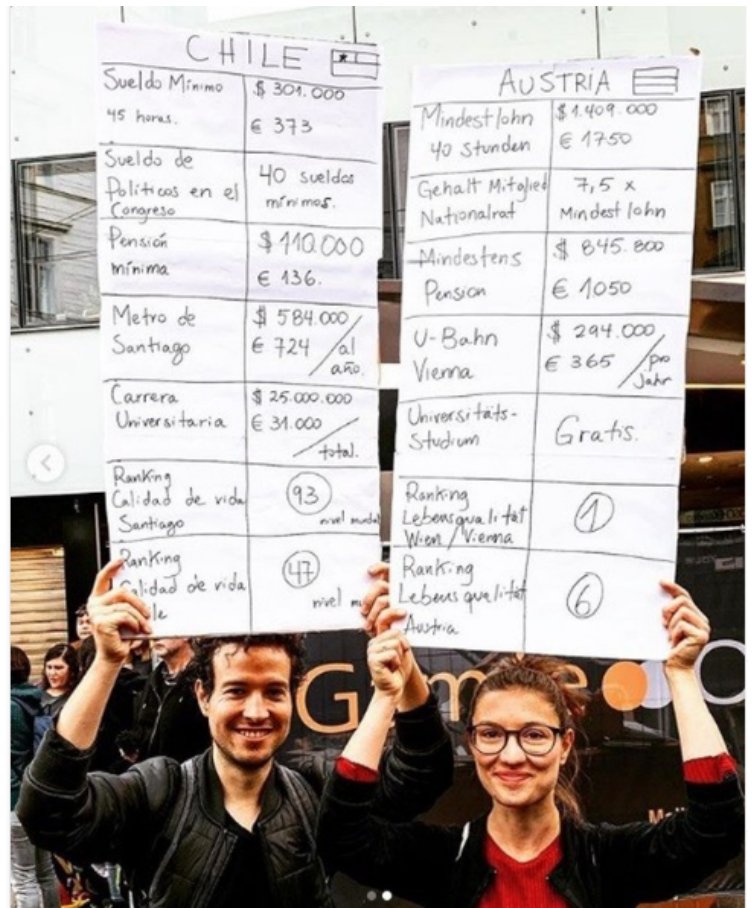 CHILE
Sueldo Mínimo
45 horas.
$ 301.000
€ 373
Sueldo de
Políticos en el
Congreso
40 sueldos
mínimos.
Pensión
mínima
$ 110.000
€ 136.
Metro de
Santiago
$ 584.000
€ 724 / al
año.
Carrera
Universitaria
$ 25.000.000
€ 31.000
/ total.
Ranking
Calidad de vida
Santiago
93
nivel
Ranking
Calidad de vida
47
nivel
AUSTRIA
Mindestlohn
40 Stunden
$ 1.409.000
€ 1750
Gehalt Mitglied
Nationalrat
7,5 x
Mindestlohn
Mindestens
Pension
$ 845.800
€ 1050
U-Bahn
Vienna
$ 294.000
€ 365 / pro
Jahr
Universitäts-
Studium
Gratis.
Ranking
Lebensqualität
Wien / Vienna
1
Ranking
Lebensqualität
Austria
6